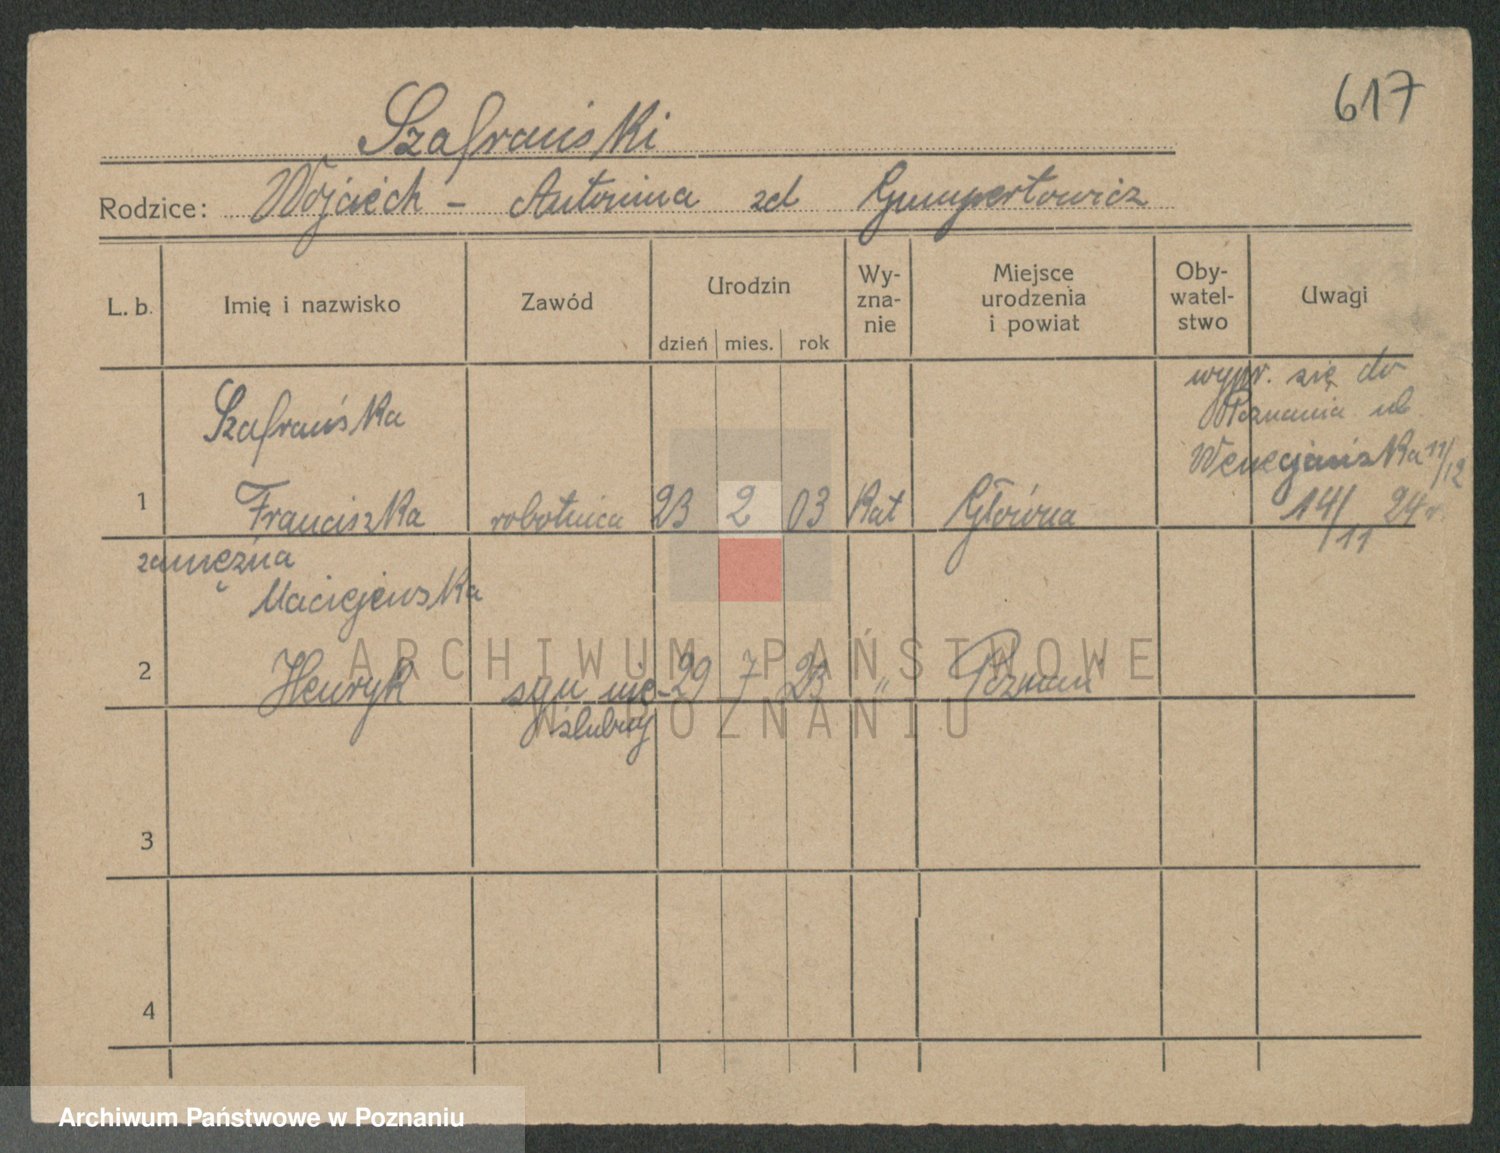 617
Szafrański
Rodzice: Wojciech - Antonina zd Gumpertowicz
L. b. Imię i nazwisko Zawód Urodzin dzień mies. rok Wy-zna-nie Miejsce urodzenia i powiat Oby-watel-stwo Uwagi
wypr. się do
Poznania ul.
Wenecjańska 11/12
14/11 24 r.
Szafrańska
1 Franciszka robotnica 23 2 03 Kat Główna
zamężna
Maciejewska
2 Henryk syn nie- 29 7 23 " Poznań
ślubny
3
4
ARCHIWUM PAŃSTWOWE
W POZNANIU
Archiwum Państwowe w Poznaniu